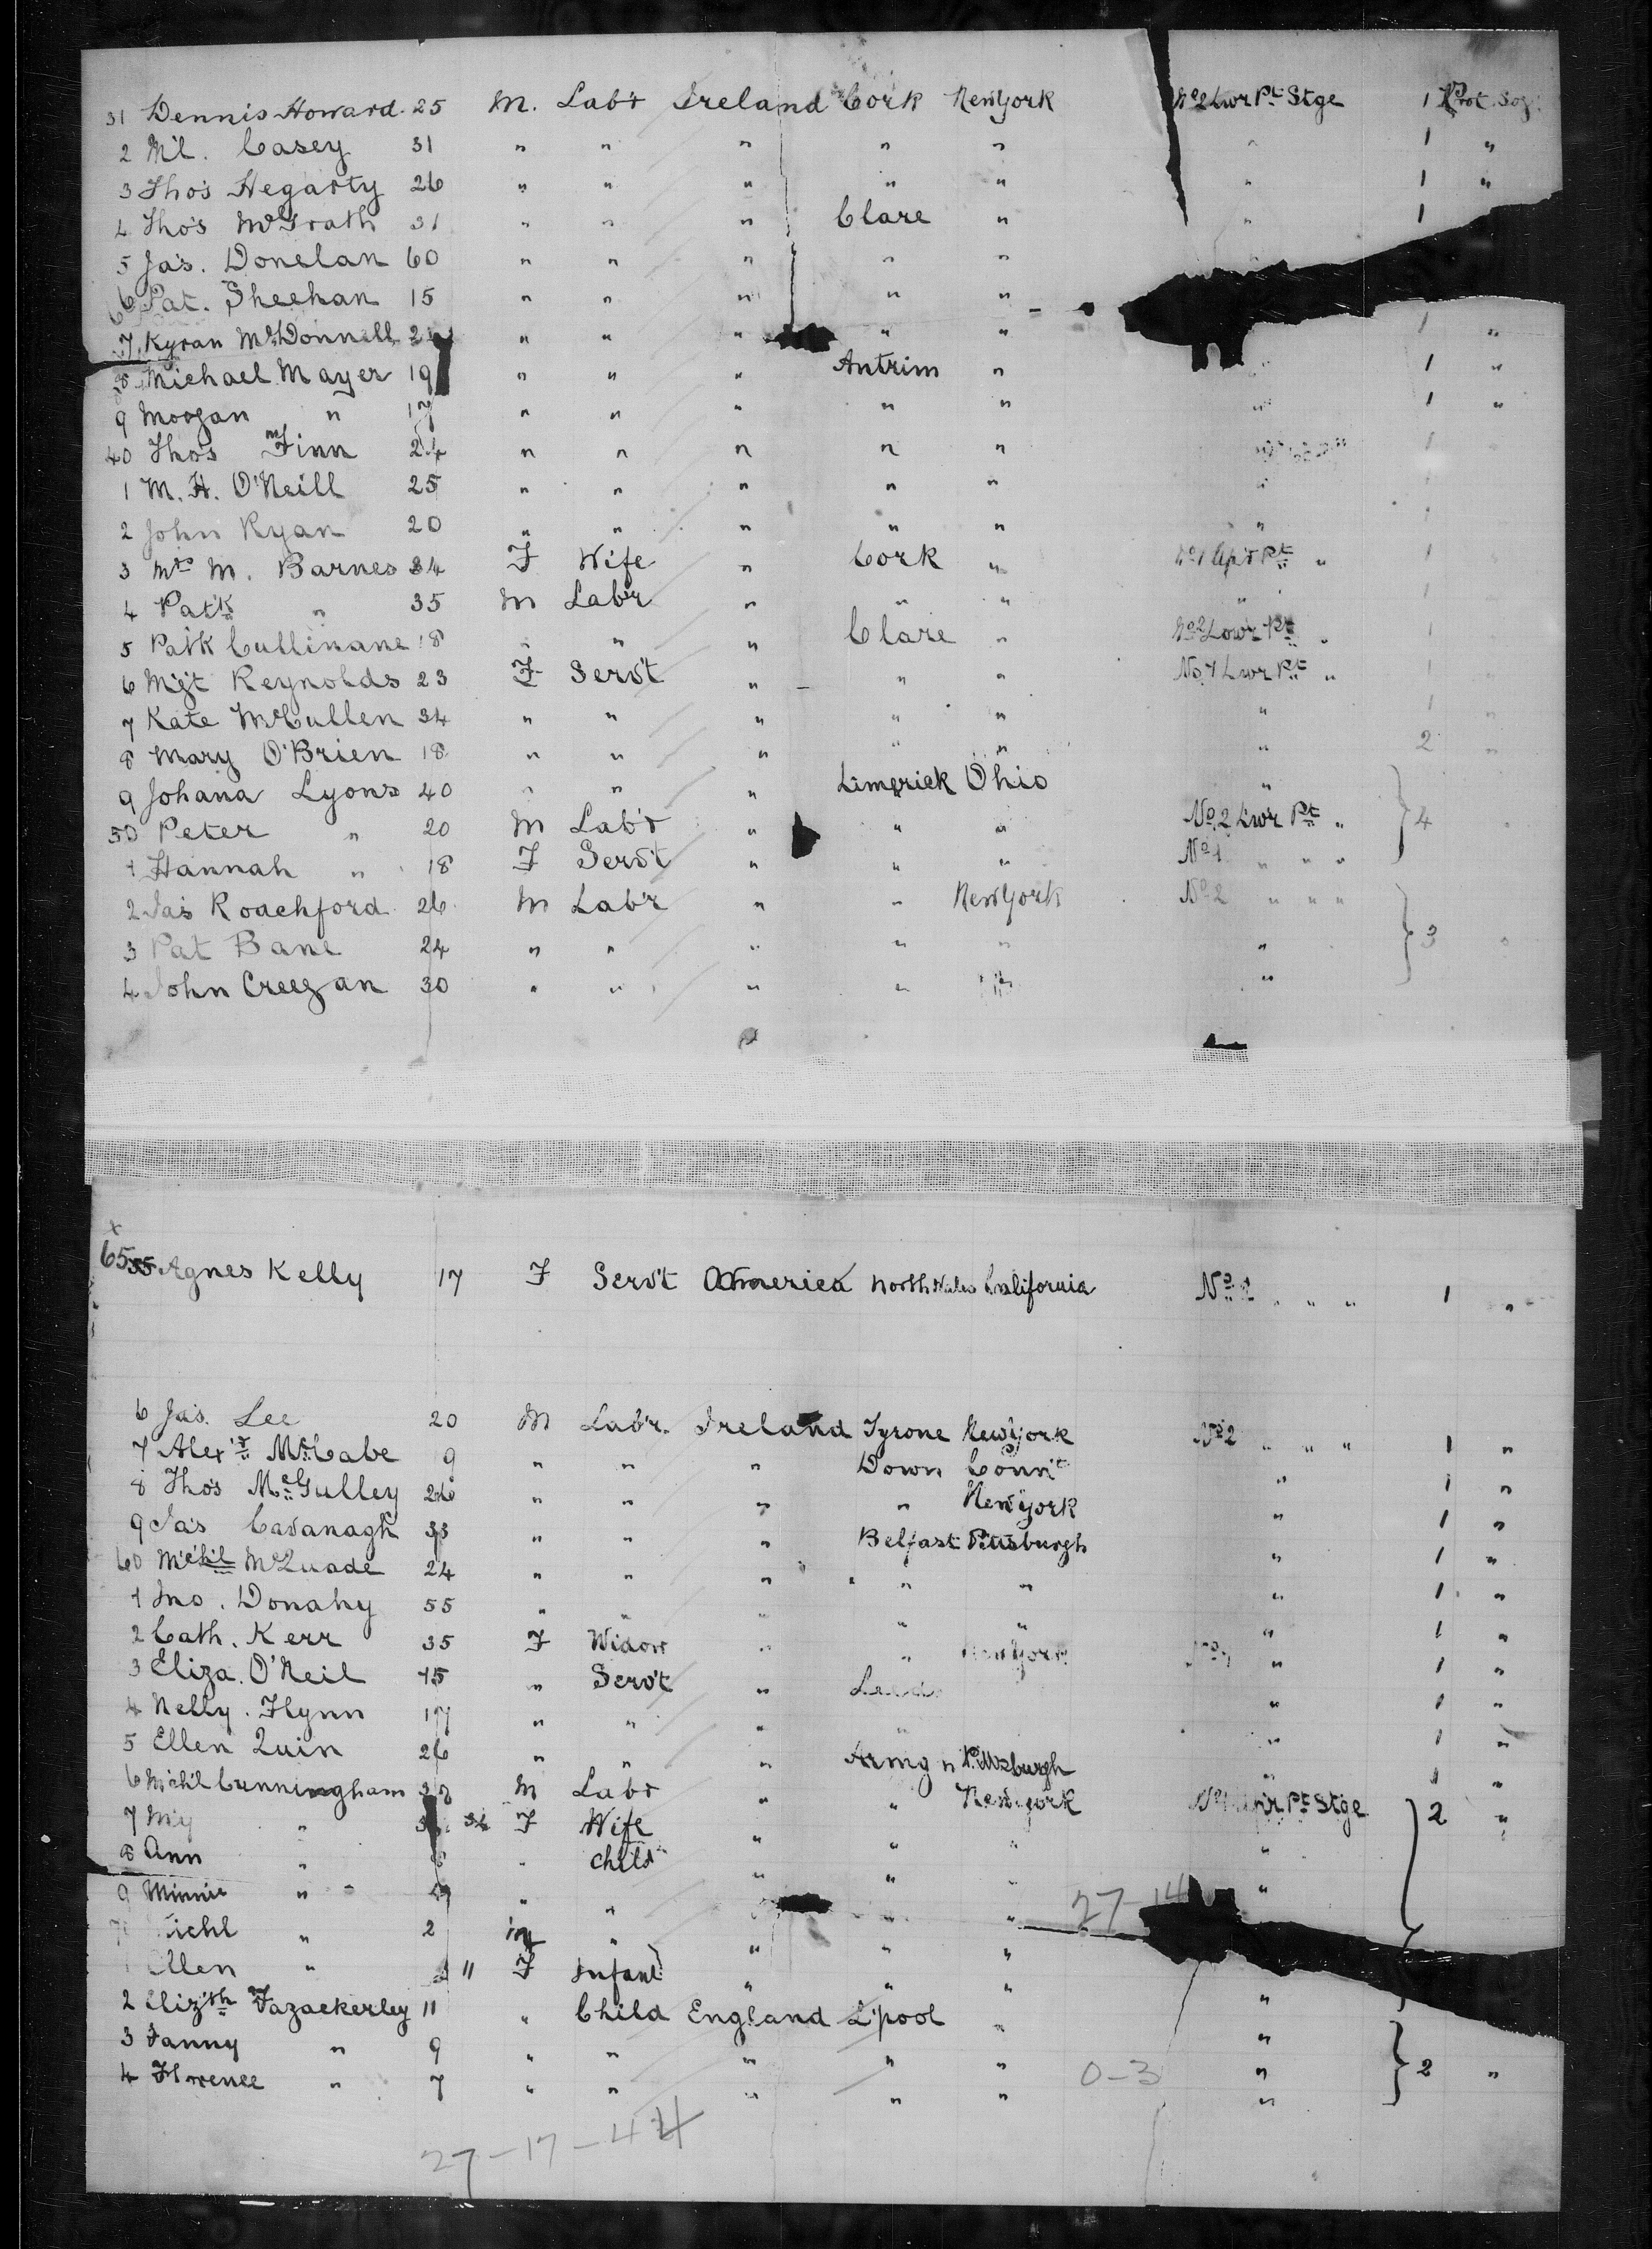 31 Dennis Howard 25 M. Lab'r Ireland Cork New York No 2 Lwr Pt Stge 1 Prot. Soz
2 Ml. Casey 31 " " " " " " 1 "
3 Tho's Hegarty 26 " " " " " " 1 "
4 Tho's McGrath 31 " " " Clare " " 1
5 Ja's. Donelan 60 " " " " "
6 Pat. Sheehan 15 " " " " "
7 Kyran McDonnell " " " " " 1 "
8 Michael Mayer 19 " " " Antrim " 1 "
9 Morgan " 17 " " " " " " 1 "
40 Thos Finn 24 " " " " " 1
1 M. H. O'Neill 25 " " " " " " 1
2 John Ryan 20 " " " " " " 1
3 Mrs M. Barnes 34 F Wife " Cork " No 1 Up'r Pt " 1
4 Patk " 35 M Lab'r " " " " 1
5 Patk Cullinane 18 " " " Clare " No 2 Lowr Pt " 1
6 Mgt Reynolds 23 F Serv't " " " No 1 Lwr Pt " 1
7 Kate McCullen 34 " " " " " " 1 "
8 Mary O'Brien 18 " " " " " " 2 "
9 Johana Lyons 40 " " " Limerick Ohio "
50 Peter " 20 M Lab'r " " " No 2 Lwr Pt " 4 "
1 Hannah " 18 F Serv't " " " No 1 " " "
2 Jas Roachford 26 M Lab'r " " New York No 2 " " "
3 Pat Bane 24 " " " " " " 3 "
4 John Creegan 30 " " " " " "
x
65 55 Agnes Kelly 17 F Serv't America North Wales California No 2 " " " 1 "
6 Ja's. Lee 20 M Lab'r. Ireland Tyrone New York No 2 " " " 1 "
7 Alexr McCabe 9 " " " Down Conn't " 1 "
8 Tho's McGulley 26 " " " " New York " 1 "
9 Ja's Cavanagh 33 " " " Belfast Pittsburgh " 1 "
60 Mich'l McQuade 24 " " " " " " 1 "
1 Jno. Donahy 55 " " " " " " 1 "
2 Cath. Kerr 35 F Widow " " New York No 1 " 1 "
3 Eliza. O'Neil 45 " Serv't " Leeds " 1 "
4 Nelly. Flynn 17 " " " " " 1 "
5 Ellen Quin 26 " " " Armg h Pittsburgh " 1 "
6 Mich'l Cunningham M Labr " " New York Lwr Pt Stge 2 "
7 My " 34 F Wife " " " " "
8 Ann " " Child " " " "
9 Minnie " " " " " " 27-14
Michl " 2 M " " " "
Ellen " 11 F Infant " " " "
2 Eliz'th Fazackerley 11 " Child England L'pool " "
3 Fanny " 9 " " " " " " 2 "
4 Florence " 7 " " " " " 0-3 "
27-17-44